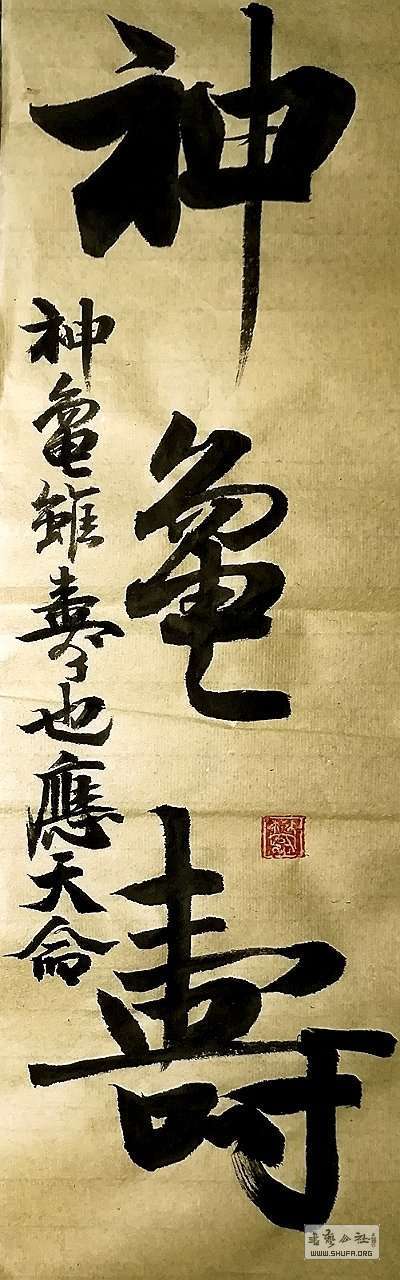 神龜壽
神龜雖壽也應天命
WWW.SHUFA.ORG